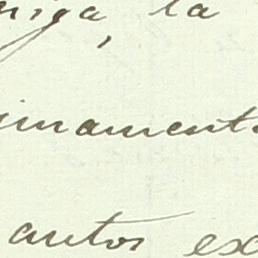 niga, la
imament
autos ex